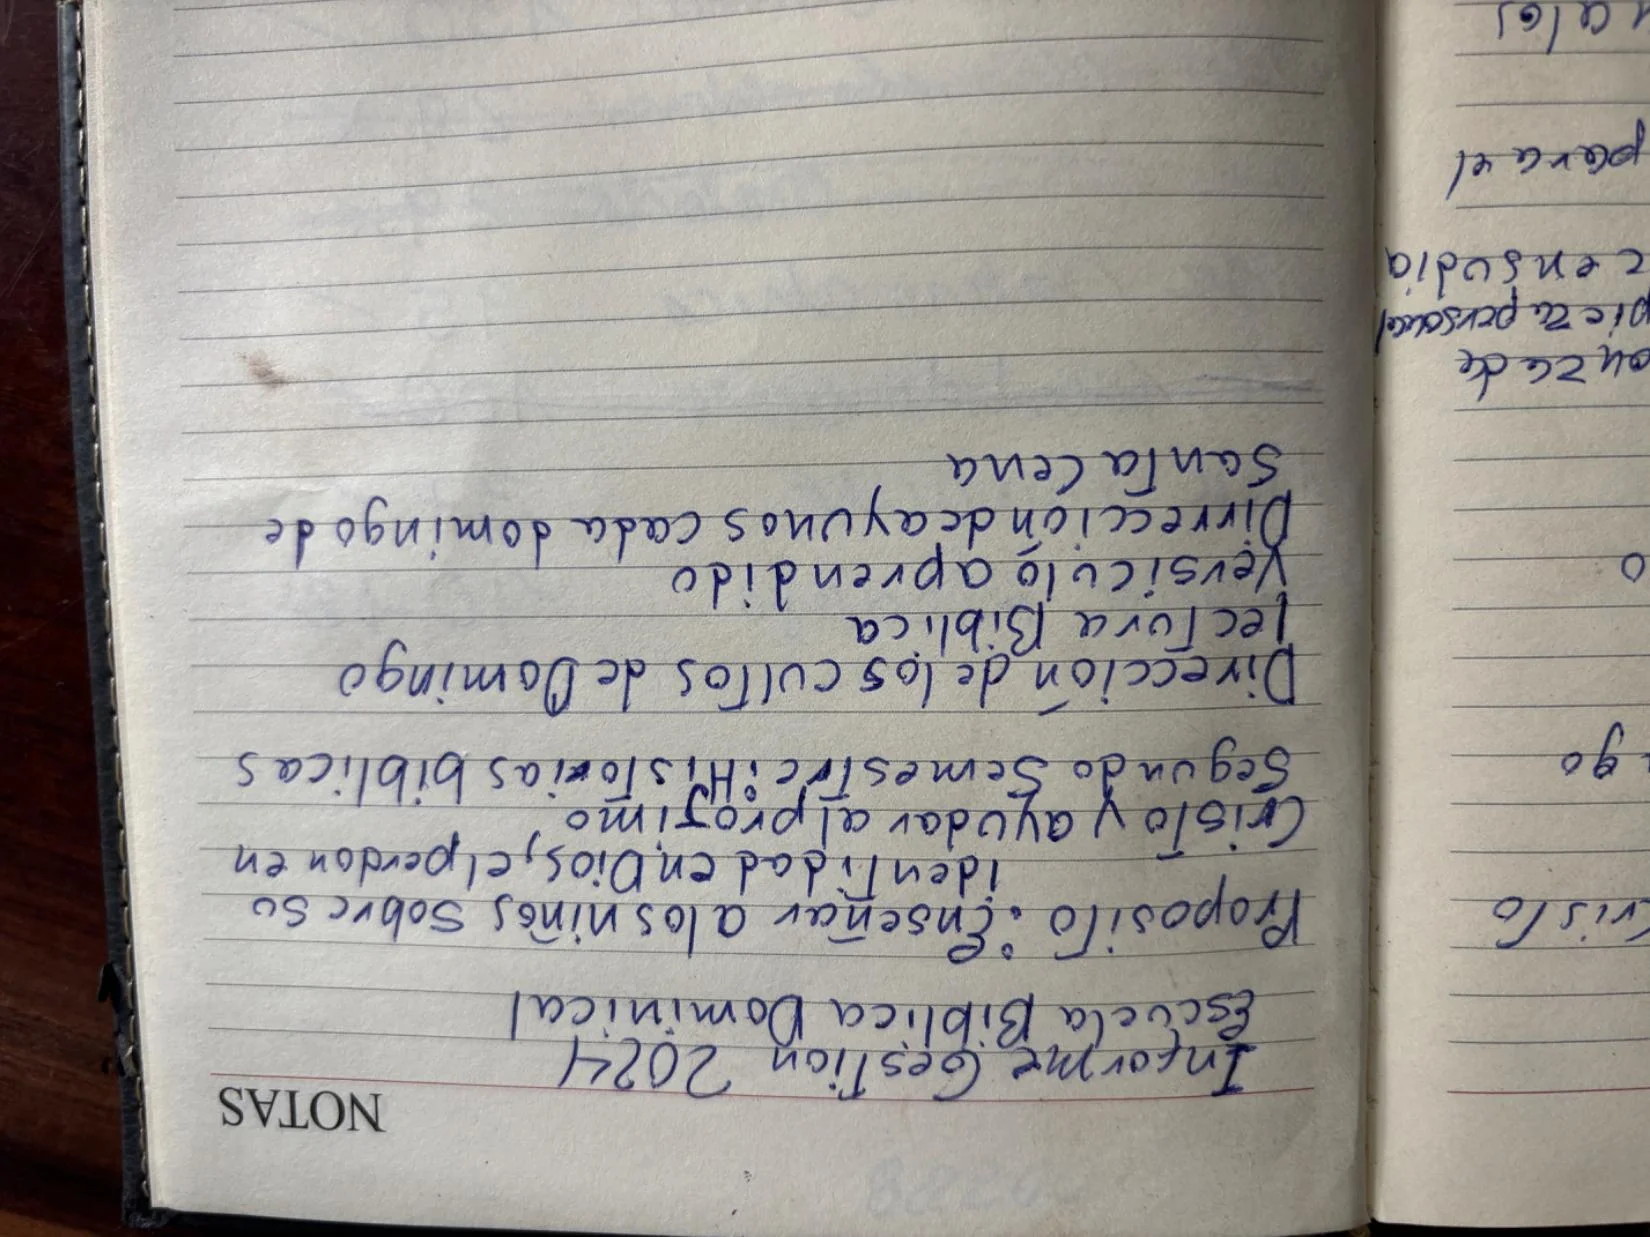 NOTAS
Informe Gestion 2024
Escuela Biblica Dominical
Proposito: Enseñar a los niños sobre su
identidad en Dios, el perdon en
Cristo y ayudar al projimo
Segundo Semestre: Historias biblicas
Dirección de los cultos de Domingo
lectura Biblica
Versículo aprendido
Dirrección de ayunos cada domingo de
Santa Cena
risto
go
o
anza de
pieza personal
censudia
para el
a los